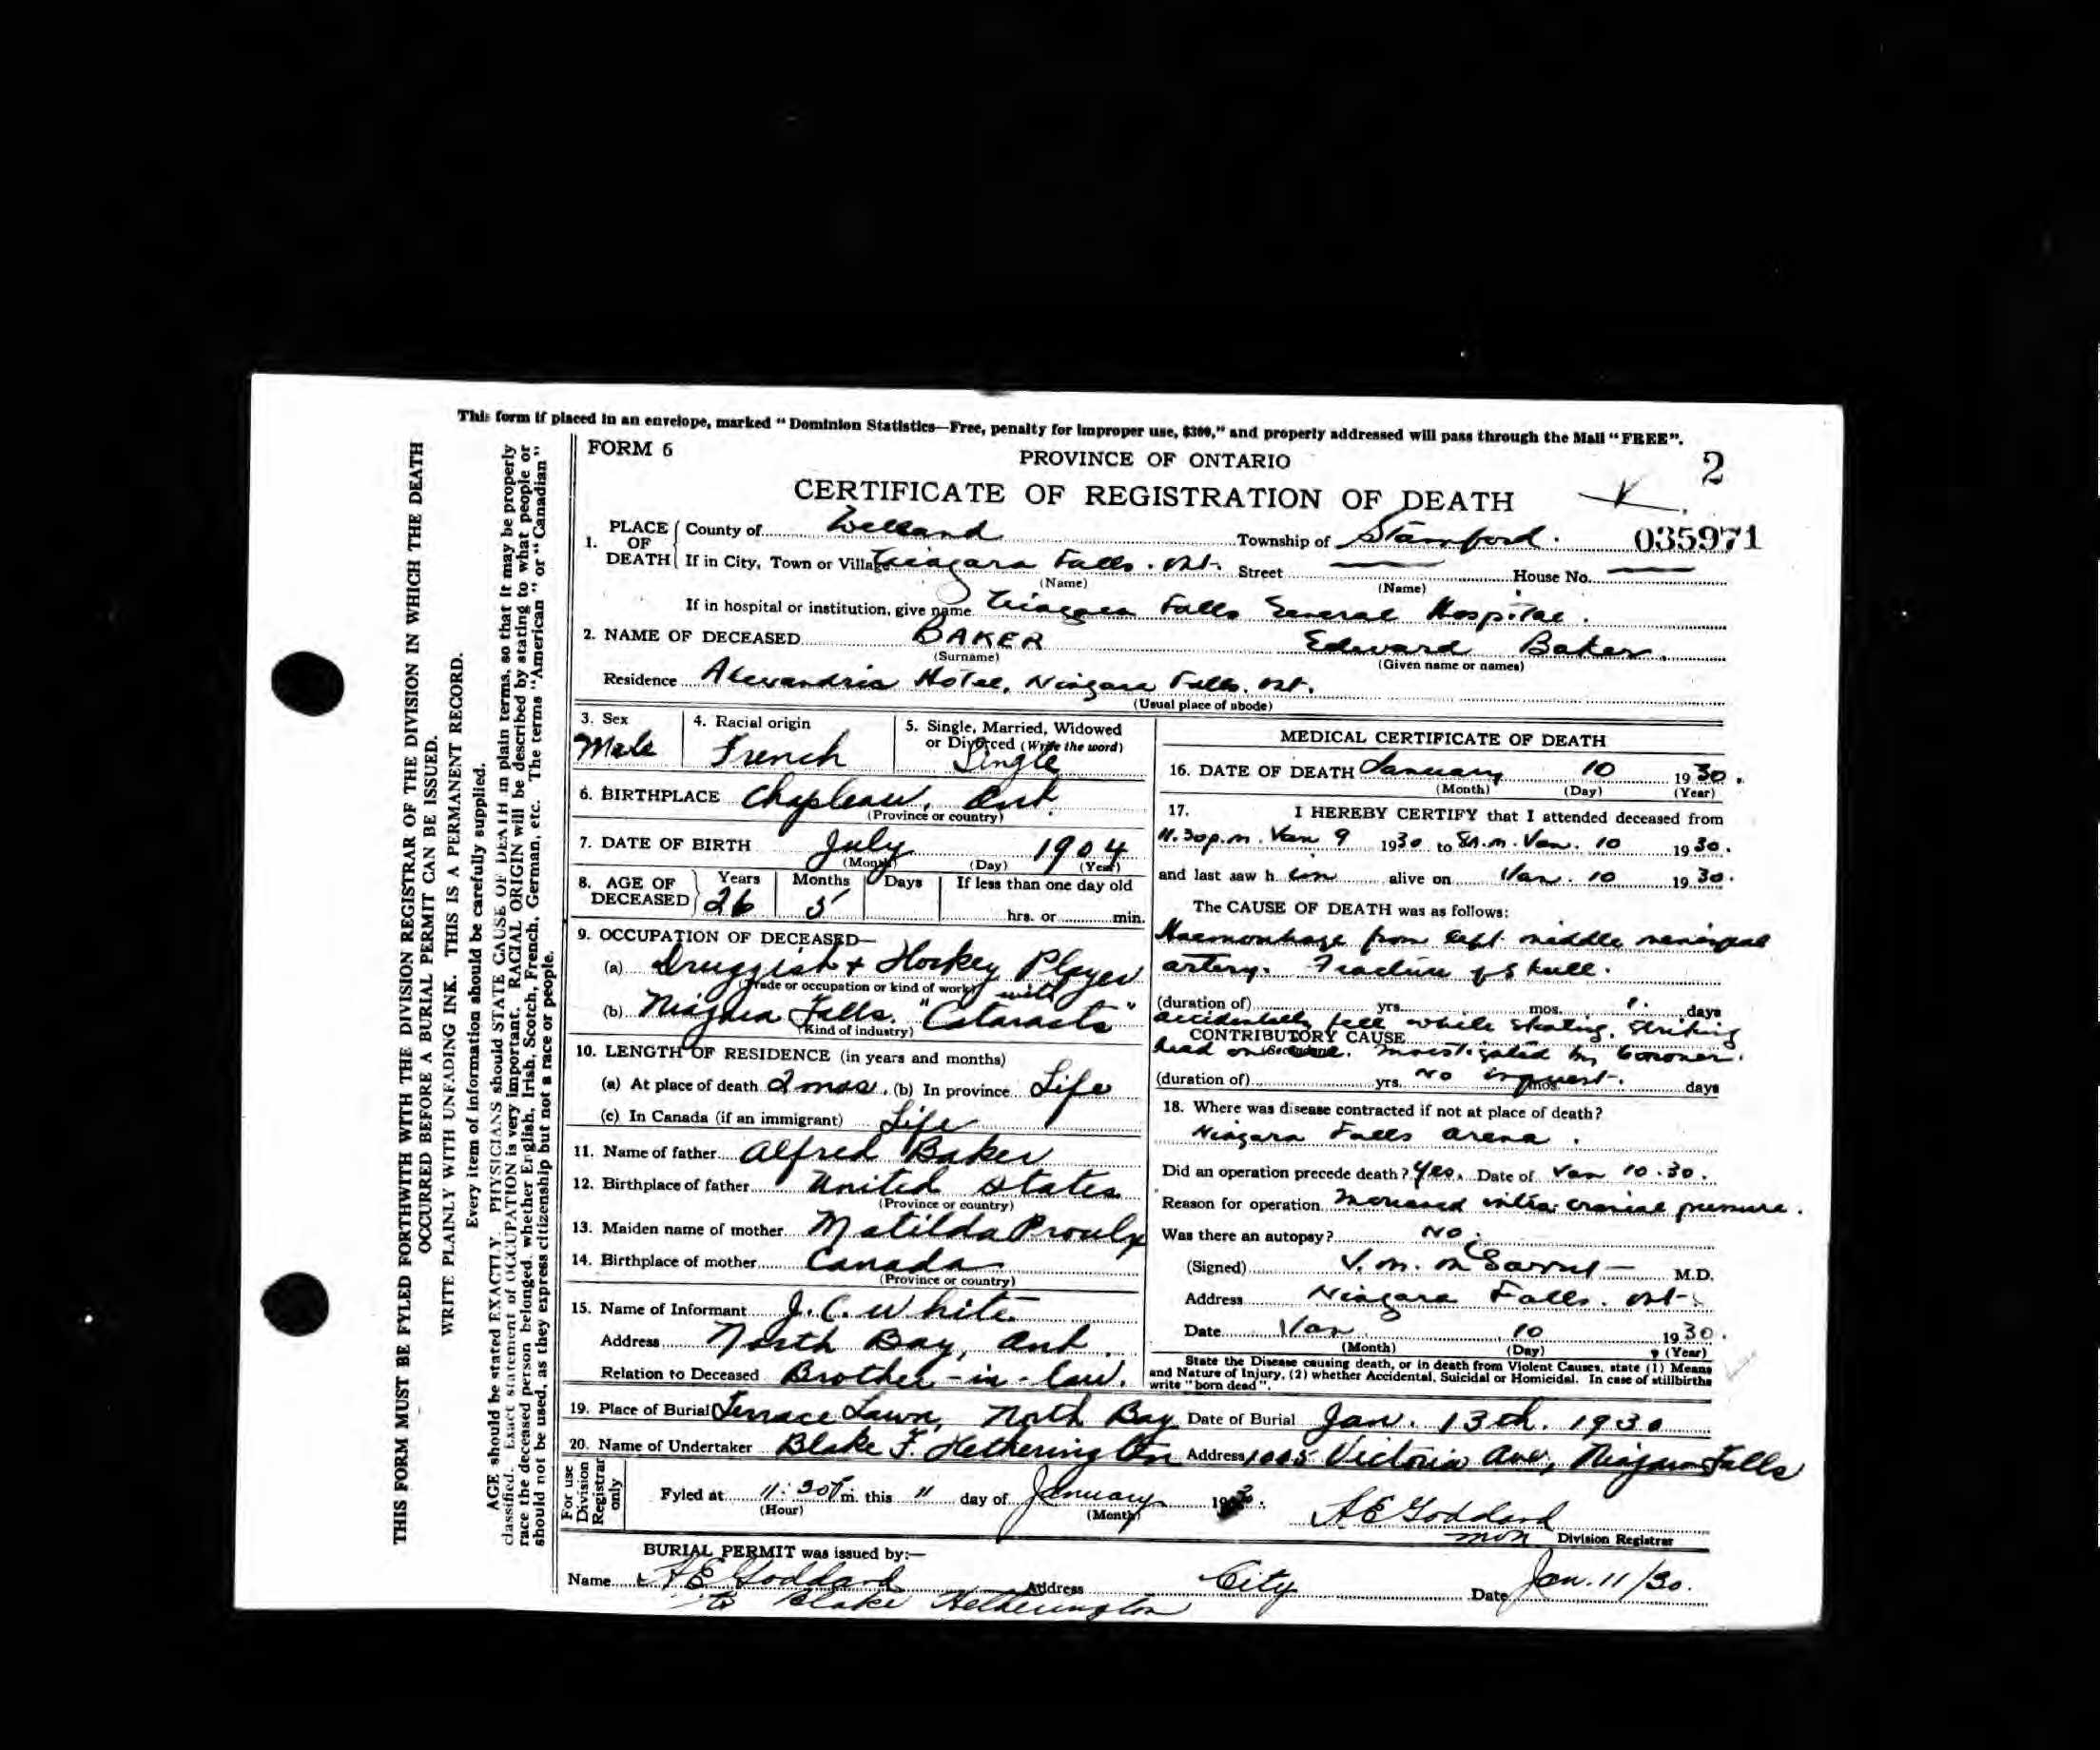 This form if placed in an envelope, marked "Dominion Statistics—Free, penalty for improper use, $300," and properly addressed will pass through the Mail "FREE".
THIS FORM MUST BE FYLED FORTHWITH WITH THE DIVISION REGISTRAR OF THE DIVISION IN WHICH THE DEATH
OCCURRED BEFORE A BURIAL PERMIT CAN BE ISSUED.
WRITE PLAINLY WITH UNFADING INK. THIS IS A PERMANENT RECORD.
Every item of information should be carefully supplied.
AGE should be stated EXACTLY. PHYSICIANS should STATE CAUSE OF DEATH in plain terms, so that it may be properly
classified. Exact statement of OCCUPATION is very important. RACIAL ORIGIN will be described by stating to what people or
race the deceased person belonged, whether English, Irish, Scotch, French, German, etc. The terms "American" or "Canadian"
should not be used, as they express citizenship but not a race or people.
FORM 6
PROVINCE OF ONTARIO
2
CERTIFICATE OF REGISTRATION OF DEATH
035971
1. PLACE OF DEATH County of Welland Township of Stamford.
If in City, Town or Village Niagara Falls. Ont. Street — House No. —
(Name) (Name)
If in hospital or institution, give name Niagara Falls General Hospital.
2. NAME OF DECEASED BAKER Edward Baker.
(Surname) (Given name or names)
Residence Alexandria Hotel, Niagara Falls. Ont.
(Usual place of abode)
3. Sex Male
4. Racial origin French
5. Single, Married, Widowed or Divorced (Write the word) Single
6. BIRTHPLACE Chapleau, Ont.
(Province or country)
7. DATE OF BIRTH July 1904
(Month) (Day) (Year)
8. AGE OF DECEASED Years 26 Months 5 Days If less than one day old
hrs. or min.
9. OCCUPATION OF DECEASED—
(a) Druggist + Hockey Player
(Trade or occupation or kind of work) with
(b) Niagara Falls. "Cataracts"
(Kind of industry)
10. LENGTH OF RESIDENCE (in years and months)
(a) At place of death 2 mos. (b) In province Life
(c) In Canada (if an immigrant) Life
11. Name of father Alfred Baker
12. Birthplace of father United States
(Province or country)
13. Maiden name of mother Matilda Proulx
14. Birthplace of mother Canada
(Province or country)
15. Name of Informant J. C. White.
Address North Bay, Ont.
Relation to Deceased Brother-in-law.
MEDICAL CERTIFICATE OF DEATH
16. DATE OF DEATH January 10 1930.
(Month) (Day) (Year)
17. I HEREBY CERTIFY that I attended deceased from
11.30 p.m. Jan 9 1930 to a.m. Jan. 10 1930.
and last saw h im alive on Jan. 10 1930.
The CAUSE OF DEATH was as follows:
Haemorrhage from left middle meningeal
artery. Fracture of skull.
(duration of) yrs. mos. 1. days
accidentally fell while skating, striking
CONTRIBUTORY CAUSE
(Secondary)
head on . Investigated by Coroner.
(duration of) yrs. mos. days
No inquest.
18. Where was disease contracted if not at place of death?
Niagara Falls arena.
Did an operation precede death? Yes. Date of Jan 10.30.
Reason for operation Increased intra cranial pressure.
Was there an autopsy? No.
(Signed) M.D.
Address Niagara Falls. Ont.
Date Jan 10 1930.
(Month) (Day) (Year)
State the Disease causing death, or in death from Violent Causes, state (1) Means
and Nature of Injury, (2) whether Accidental, Suicidal or Homicidal. In case of stillbirths
write "born dead".
19. Place of Burial Terrace Lawn, North Bay Date of Burial Jan. 13th. 1930
20. Name of Undertaker Blake F. Hetherington Address 1005 Victoria Ave, Niagara Falls
For use Division Registrar only
Fyled at 11:30 m. this 11 day of January
(Hour) (Month)
A E Goddard
Division Registrar
BURIAL PERMIT was issued by:—
Name A E Goddard Address City Date Jan. 11/30.
to Blake Hetherington